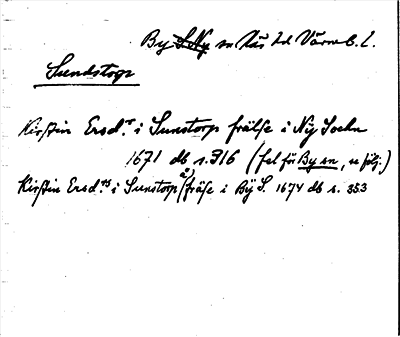 By S. Ny sn Näs hd Värml. l.
Sundstorp
Kirstin Ersd.r i Sunstorp frälse i Nÿ Sochn
1671 db s. 316 (fel för By sn, se följ.)
Kirstin Ersd.rs i Sunstorp a) (fräse i Bÿ S. 1674 db s. 353